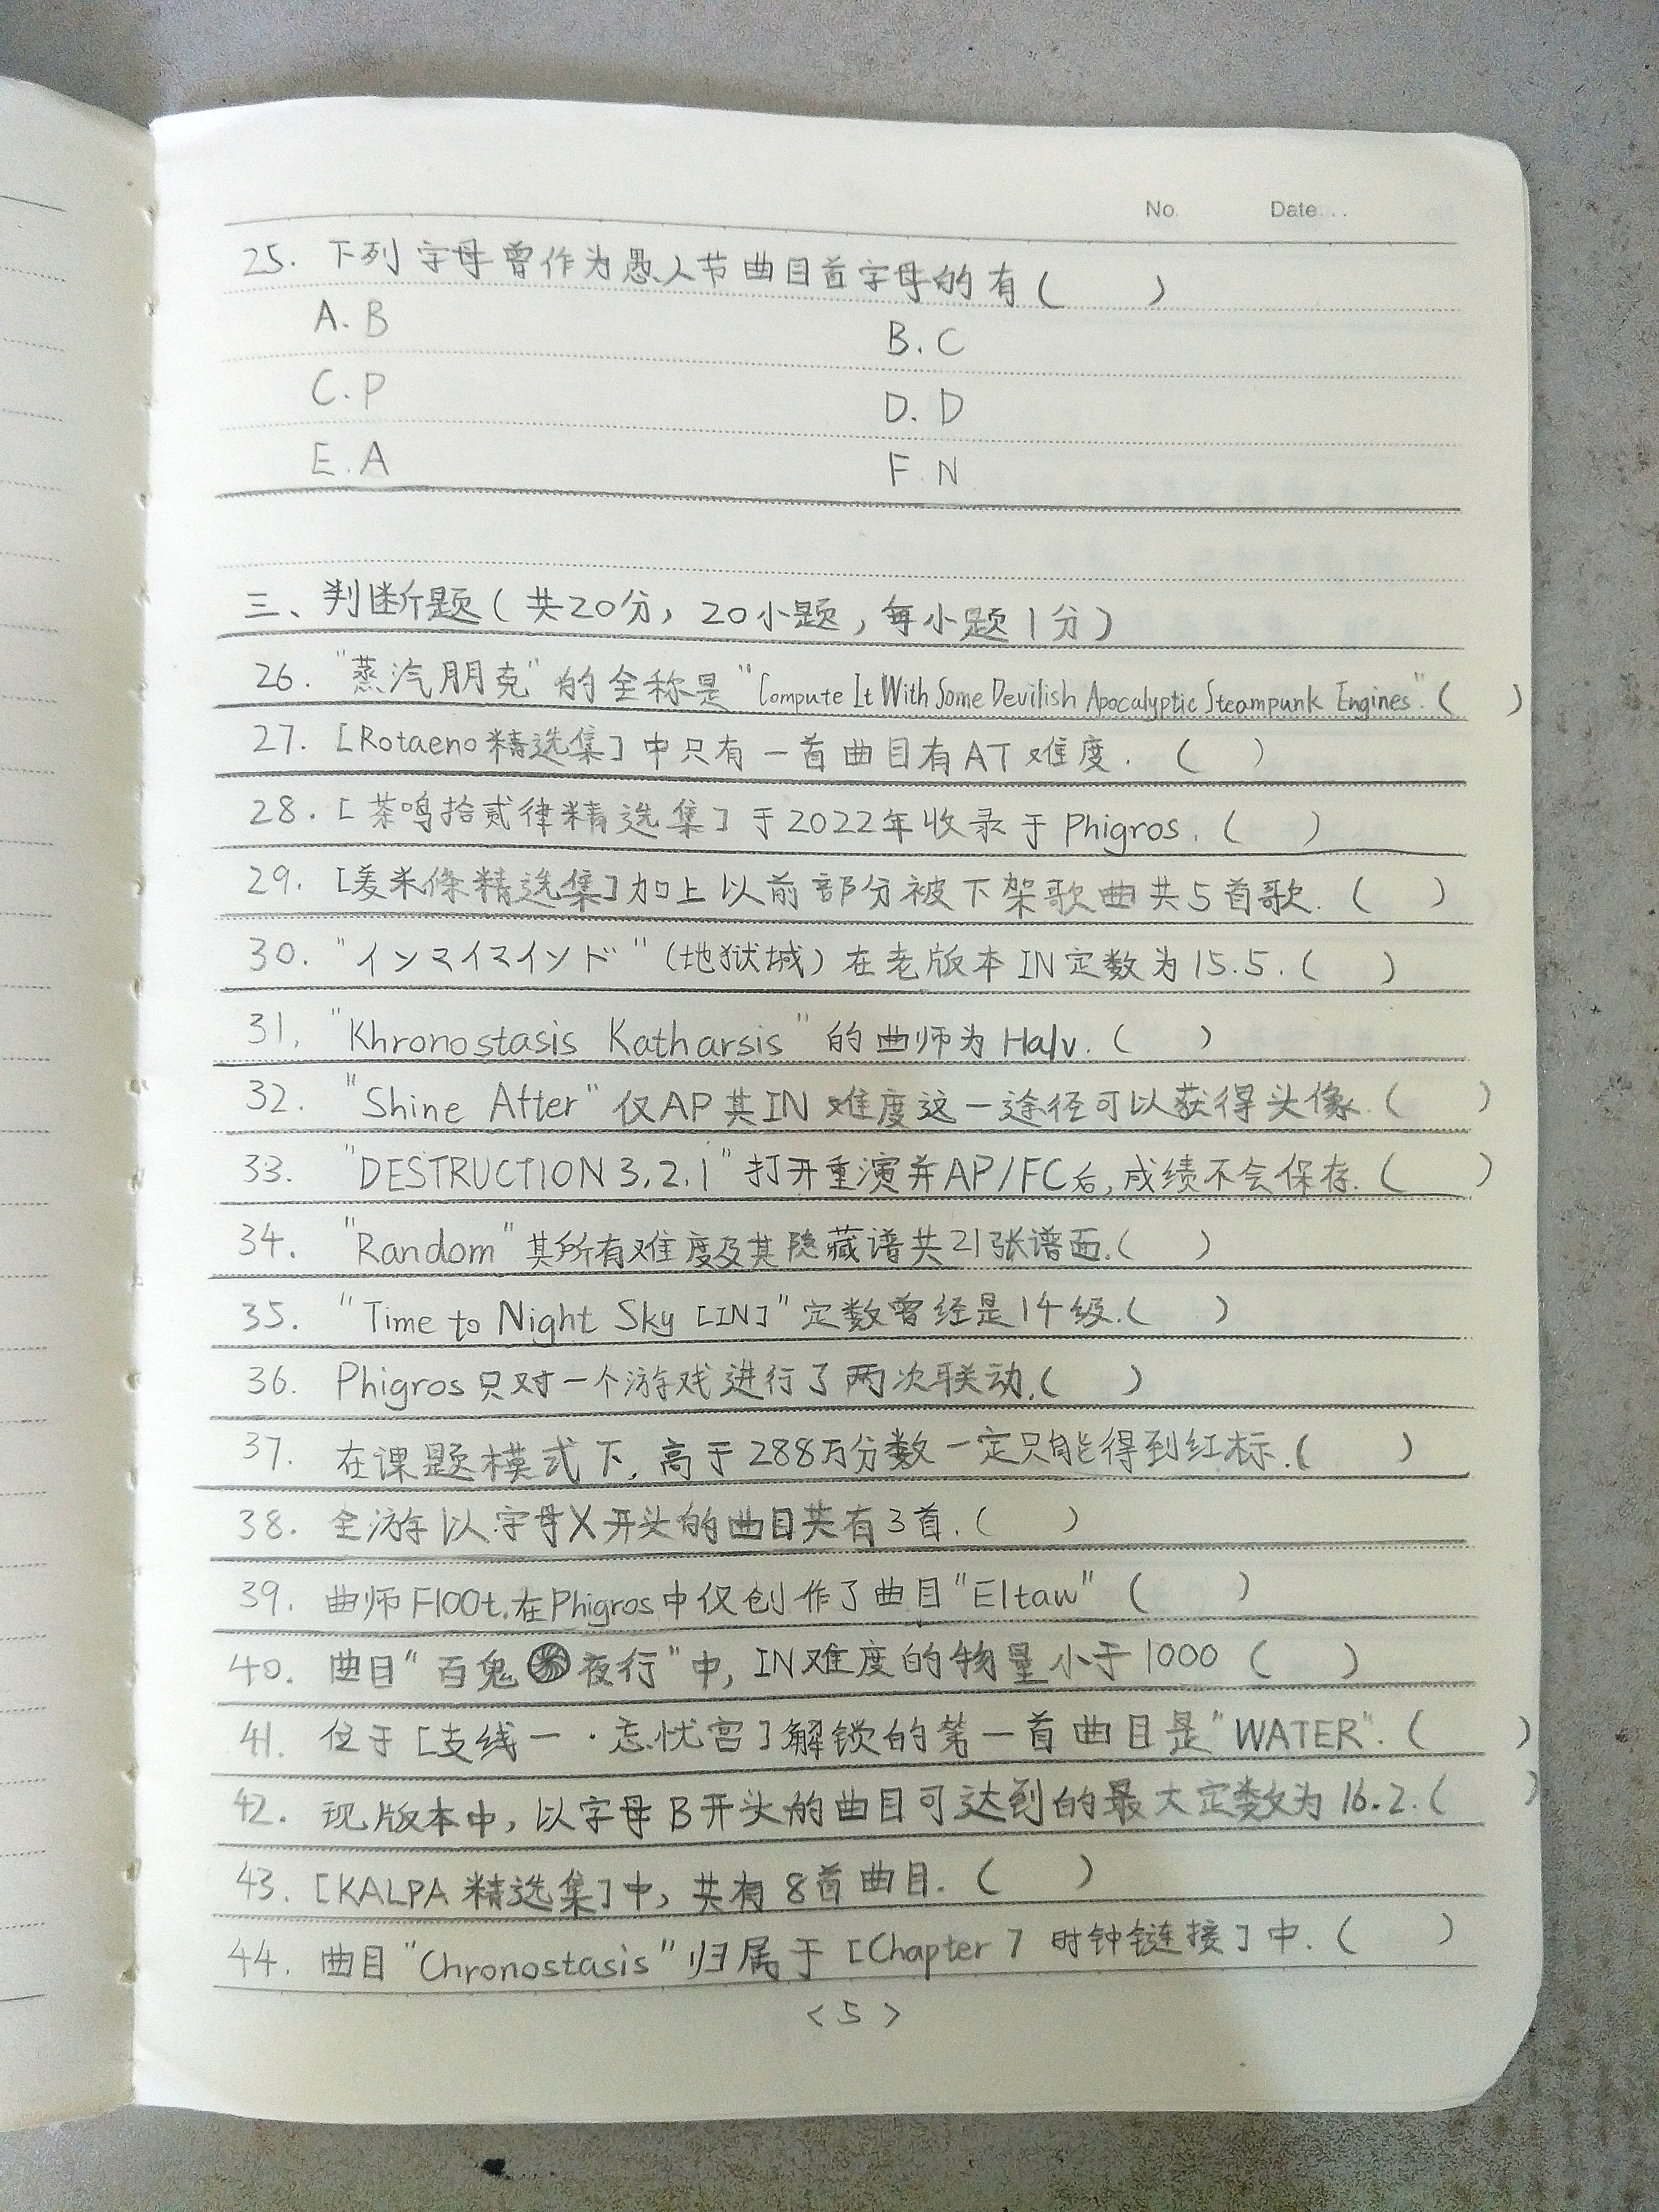 No. Date
25. 下列字母曾作为愚人节曲目首字母的有( )
A. B B. C
C. P D. D
E. A F. N
三、判断题(共20分,20小题,每小题1分)
26. "蒸汽朋克"的全称是"Compute It With Some Devilish Apocalyptic Steampunk Engines".( )
27. [Rotaeno精选集]中只有一首曲目有AT难度. ( )
28. [茶鸣拾贰律精选集]于2022年收录于Phigros. ( )
29. [姜米條精选集]加上以前部分被下架歌曲共5首歌. ( )
30. "インマイマインド"(地狱城)在老版本IN定数为15.5. ( )
31. "Khronostasis Katharsis"的曲师为Halv. ( )
32. "Shine After"仅AP其IN难度这一途径可以获得头像. ( )
33. "DESTRUCTION 3,2,1"打开重演并AP/FC后,成绩不会保存. ( )
34. "Random"其所有难度及其隐藏谱共21张谱面. ( )
35. "Time to Night Sky [IN]"定数曾经是14级. ( )
36. Phigros只对一个游戏进行了两次联动. ( )
37. 在课题模式下,高于288万分数一定只能得到红标. ( )
38. 全游以字母X开头的曲目共有3首. ( )
39. 曲师Fl00t.在Phigros中仅创作了曲目"Eltaw" ( )
40. 曲目"百鬼夜行"中,IN难度的物量小于1000 ( )
41. 位于[支线一·忘忧宫]解锁的第一首曲目是"WATER". ( )
42. 现版本中,以字母B开头的曲目可达到的最大定数为16.2. ( )
43. [KALPA精选集]中,共有8首曲目. ( )
44. 曲目"Chronostasis"归属于[Chapter 7 时钟链接]中. ( )
<5>